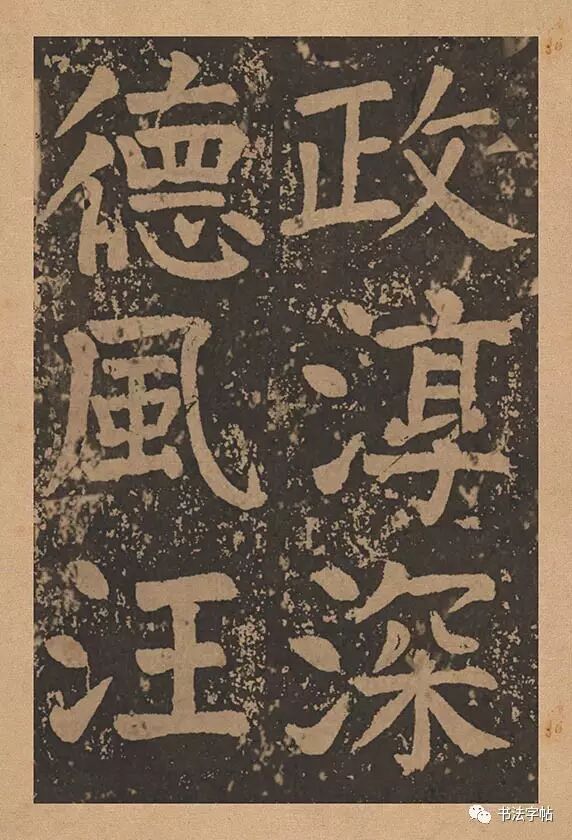 政淳深
德風汪
书法字帖